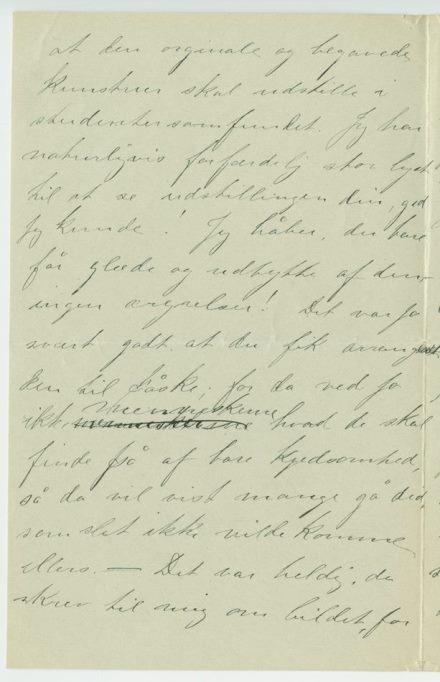 at den orginale og begavede
kunstner skal udstille i
studentersamfundet. Jeg har
naturligvis forfærdelig stor lyst
til at se udstillingen din, gid
jeg kunde! Jeg håber, du bare
får glæde og udbytte af den,
ingen ærgrelser! Det var jo
svært godt at du fik arrangert
den til Påske, for da ved jo
ikke menneskene hvad de skal
finde på af bare kjedsomhed,
så da vil vist mange gå did,
som slet ikke vilde komme
ellers. — Det var heldig, du
skrev til mig om billedet, for